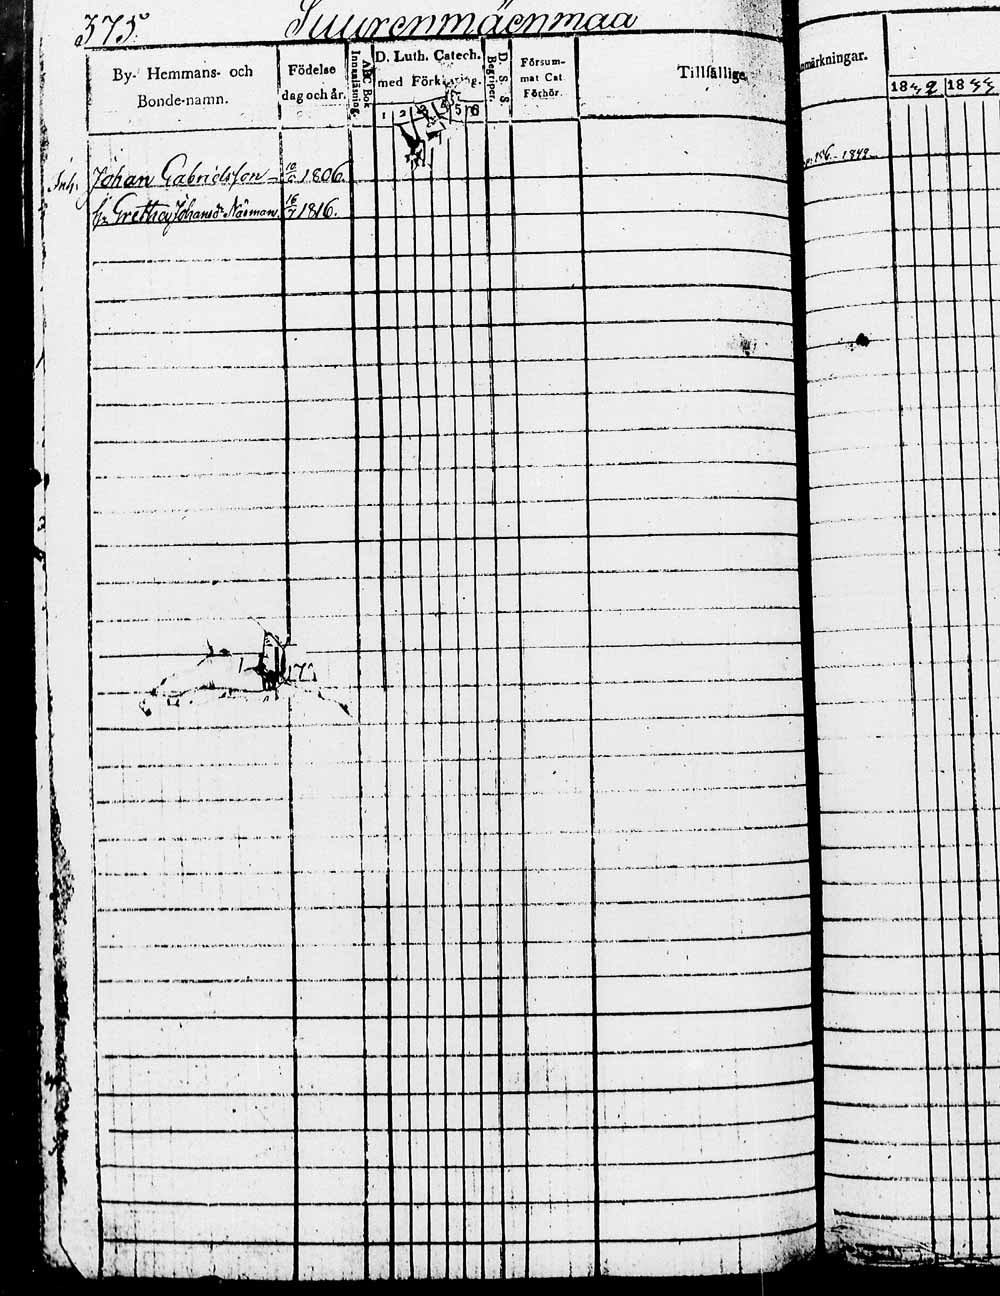 375.
Suurenmäenmaa
By- Hemmans- och
Bonde-namn.
Födelse
dag och år.
ABC Bok
Innanläsning.
D. Luth. Catech.
med Förklaring.
1 2 3 5 6
D. S. S.
Begriper.
Försum-
mat Cat
Förhör.
Tillfällige
nmärkningar.
18 18
Inh. Johan Gabrielsson 1806.
Gretha Johansdr Näsman. 16/7 1816.
1849